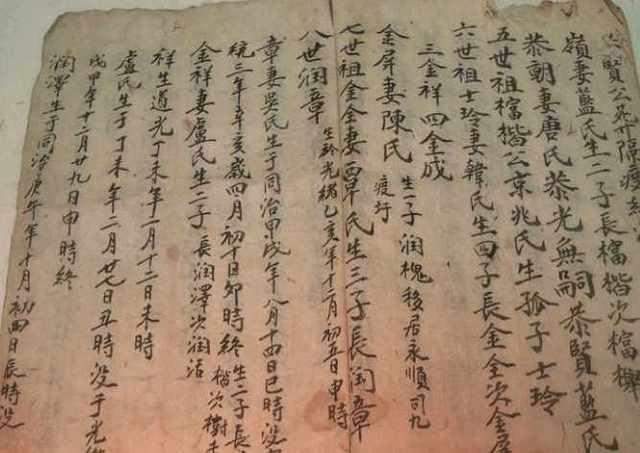 賢公
嶺妻藍氏生二子長檔楷次檔
恭朝妻唐氏恭光無嗣恭賢藍氏
五世祖檔楷公京兆氏生孤子士玲
六世祖士玲妻韓氏生四子長金全次金屏
三金祥四金成
金屏妻陳氏生一子潤槐移居永順司九
七世祖金全妻覃氏生三子長潤章
八世潤章生於光緒乙亥年十二月初五日申時
章妻吳氏生于同治甲戌年八月十四日巳時没
統三年辛亥歲四月初十日卯時終生二子長
金祥妻盧氏生二子長潤澤次潤活
祥生道光丁未年一月十二日未時
盧氏生于丁未年二月廿七日丑時没于光緒
戊甲年十二月廿九日申時終
潤澤生于同治庚午年十月初四日長時没